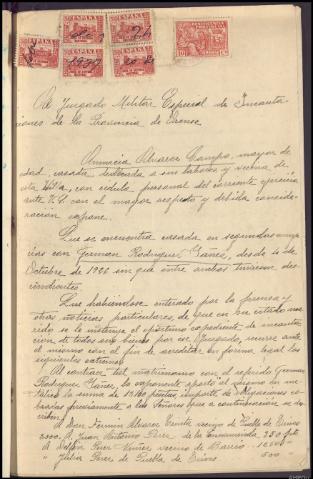 ESPAÑA
ESPAÑA
ESPAÑA
ESPAÑA
ESPAÑA
Al Juzgado Militar Especial de Incauta
ciones de la Provincia de Orense
Álvarez Campo, mayor de
edad, casada dedicada a sus labores y vecina de
esta con cédula personal del corriente ejercicio
ante V.S. con el mayor respeto y debida conside-
ración expone:
Que se encuentra casada en segundas nup-
cias con German Rodriguez Yañez, desde
Octubre de 1906 sin que entre ambos tuviesen des-
cendientes.
Que habiendose enterado por la prensa y
otras noticias particulares, de que a su citado ma-
rido se le instruye el oportuno expediente de incauta-
ción de todos sus bienes por ese Juzgado, ocurre ante
el mismo con el fin de acreditar en forma legal los
siguientes extremos:
Al contraer tal matrimonio con el referido German
Rodriguez Yañez, la exponente aportó al mismo en me-
tálico la suma de pesetas importe de obligaciones co-
bradas previamente a los Señores que a continuación se de-
A Don Fermin Alvarez vecino de Puebla de
A Juan Antonio Perez de 250 pts
A Nuñez vecino de Barrio
" Julia Perez de Puebla de 500 "